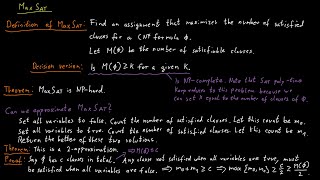 MaxSat
Definition of MaxSat: Find an assignment that maximises the number of satisfied
clauses for a CNF formula Φ.
Let M(Φ) be the number of satisfiable clauses.
Decision version: Is M(Φ) ≥ k for a given k.
Is NP-complete. Note that Sat poly-time
Karp reduces to this problem because we
can set k equal to the number of clauses of Φ.
Theorem: MaxSat is NP-hard.
Can we approximate MaxSat?
Set all variables to false. Count the number of satisfied clauses. Let this count be m₀.
Set all variables to true. Count the number of satisfied clauses. Let this count be m₁.
Return the better of these two solutions.
Theorem: This is a 2-approximation.
Proof: Any Φ has c clauses in total. Any clause not satisfied when all variables are true, must
be satisfied when all variables are false. ⟹ m₀ + m₁ ≥ c ⟹ max{m₀, m₁} ≥ c/2 ≥ M(Φ)/2